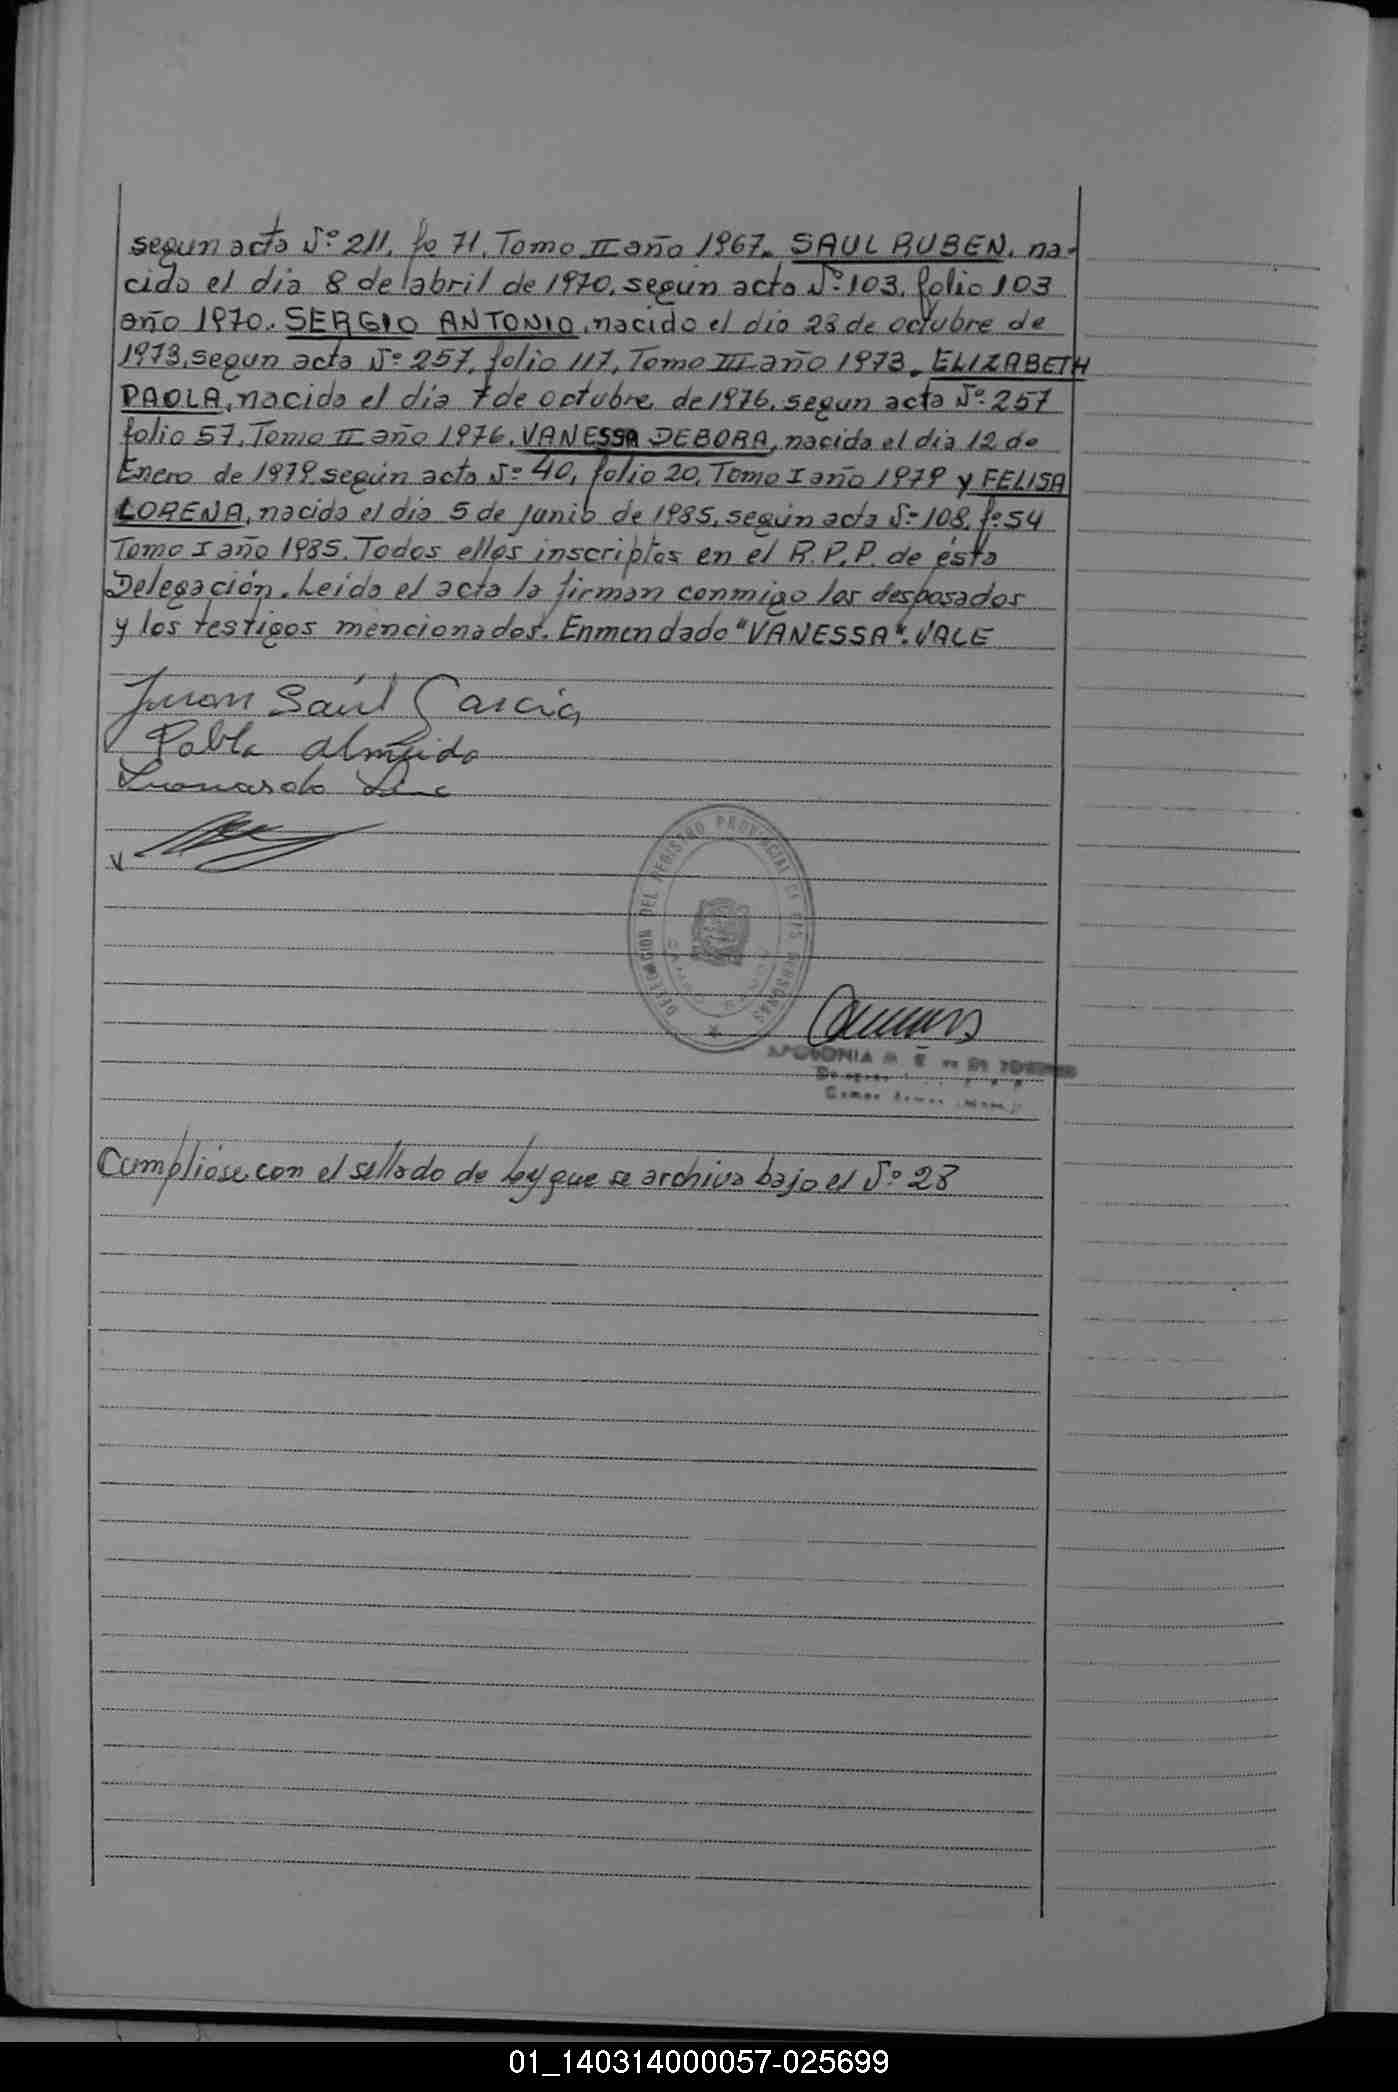 segun acta Nº 211, fo 71, Tomo II año 1967. SAUL RUBEN, na-
cido el dia 8 de abril de 1970, segun acta Nº 103, folio 103
año 1970. SERGIO ANTONIO, nacido el dia 28 de octubre de
1973, segun acta Nº 257, folio 117, Tomo III año 1973. ELIZABETH
PAOLA, nacida el dia 7 de octubre de 1976, segun acta Nº 257
folio 57, Tomo II año 1976. VANESSA DEBORA, nacida el dia 12 de
Enero de 1979 según acta Nº 40, folio 20, Tomo I año 1979 y FELISA
LORENA, nacida el dia 5 de junio de 1985, según acta Nº 108, fº 54
Tomo I año 1985. Todos ellos inscriptos en el R.P.P. de ésta
Delegación. Leida el acta la firman conmigo los desposados
y los testigos mencionados. Enmendado "VANESSA". VALE
Juan Saúl Garcia
Pabla Almeida
Leonardo
DELEGACION DEL REGISTRO PROVINCIAL DE LAS PERSONAS
APOLONIA
Cumplióse con el sellado de Ley que se archiva bajo el Nº 28
01_140314000057-025699